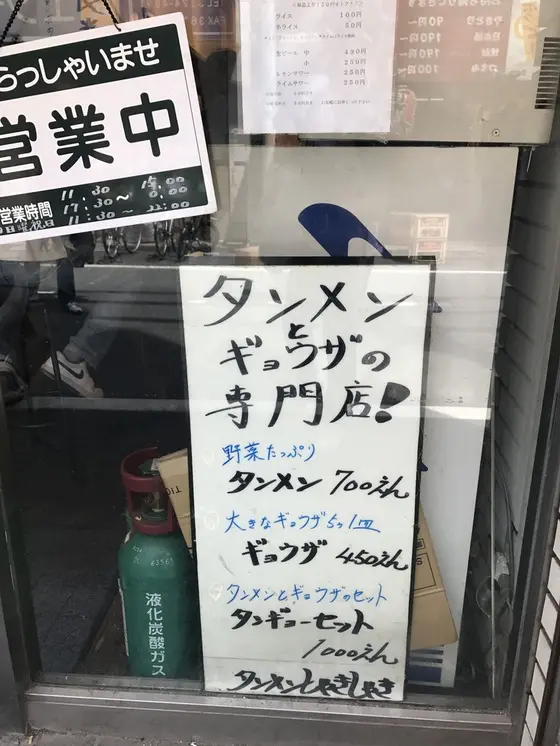 らっしゃいませ
営業中
営業時間
11:30～15:00
ライス 100円
半ライス 50円
生ビール 中 490円
小 250円
レモンサワー 250円
ライムサワー 250円
タンメン
と
ギョウザの
専門店!
野菜たっぷり
タンメン 700えん
大きなギョウザ5ヶ1皿
ギョウザ 450えん
タンメンとギョウザのセット
タンギョーセット
1000えん
タンメンしゃきしゃき
液化炭酸ガス